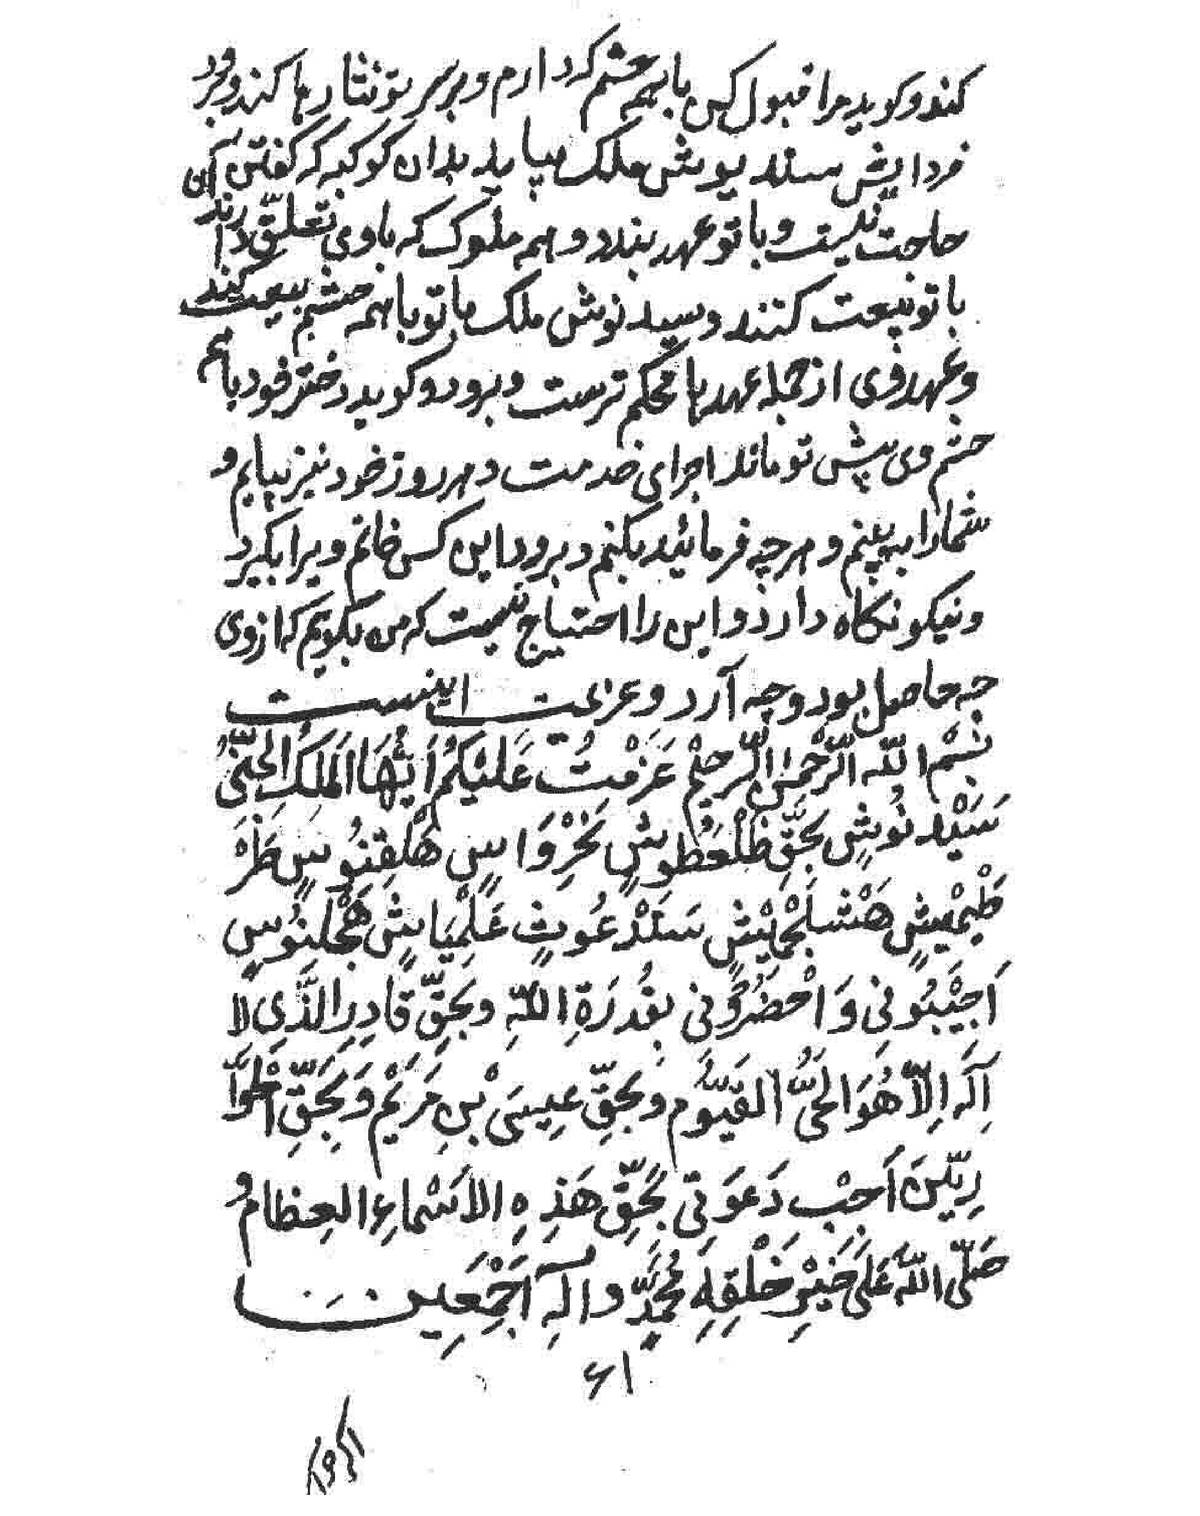 کند و کوید مرا قبول کن با همه حشم کرد ارم و بر سر تو نثار رها کند و برود
فردایش سند یوش ملک بیاید بدان کوکبه که کفتن آن
حاجت نیست و با تو عهد بندد و همه ملوک که با وی تعلق دارند
با تو بیعت کنند و سیدنوش ملک با تو با همه حشم بیعت کند
و عهد وی از جمله عهدها محکم ترست و برود و کوید دختر خود با هم
حشم وی پیش تو ماند اجرای خدمت و هر روز خود نیز بیایم و
شمارا ببینم و هرچه فرمائید بکنم و برود این کس خاتم ویرا بکیرد
و نیکو نکاه دارد و این را احتیاج نیست که من بکویم که از وی
چه حاصل بود و چه آرد و عزیمت اینست
بِسْمِ اللّه الرَّحْمنِ الرَّحیمْ عَزَمْتُ عَلَیْکُمْ اَیُّهَا المَلِکُ الجِنّیُ
سَیْدنُوشٍ بِحَقِّ ظَلْعَطُوشٍ نَخِرْوَاسٍ هَلْقِنُوسٍ طَرْ
طَیمْیشٍ هَشْلَمْیْشٍ سَنَدْعُوثٍ عَلِمْیَاشٍ هَجْلِنُوسٍ
اَجِیْبُونِی وَاحْضَرُونی بِقُدرَةِ اللّهِ وَ بِحَقِّ قادِرِ الَّذِی لا
اِلَهَ اِلّا هُوَ الحَیُّ القَیُّوم وَ بِحَقِّ عِیسَی بْنِ مَرْیَمْ وَ بِحَقِّ الْحَوَا
رِیّینَ اَجِبْ دَعوَتِی بِحَقِّ هَذِهِ الاَسْماءِ العِظام وَ
صَلّی اللّهُ عَلَی خَیْرِ خَلْقِهِ مُحَمَّدٍ وَ الِهِ اَجْمَعِین
۶۱